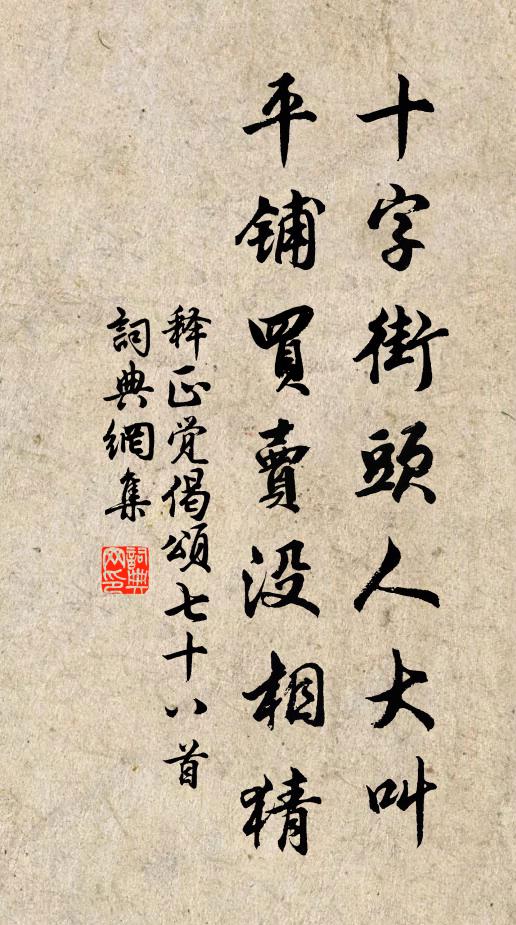 十字街頭人大叫
平铺買賣没相猜
释正觉偈頌七十八首
詞典網集
詞典网印